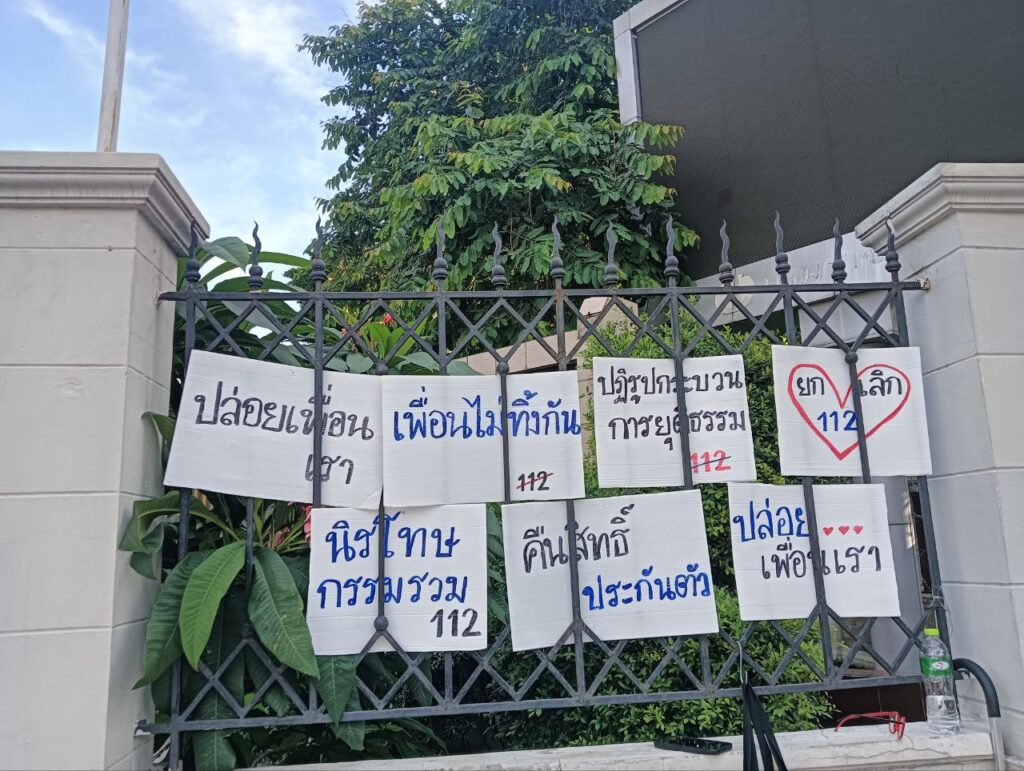 ปล่อยเพื่อน
เรา
เพื่อนไม่ทิ้งกัน
112
ปฏิรูปกระบวน
การยุติธรรม
112
ยก เลิก
112
นิรโทษ
กรรมรวม
112
คืนสิทธิ์
ประกันตัว
ปล่อย...
เพื่อนเรา